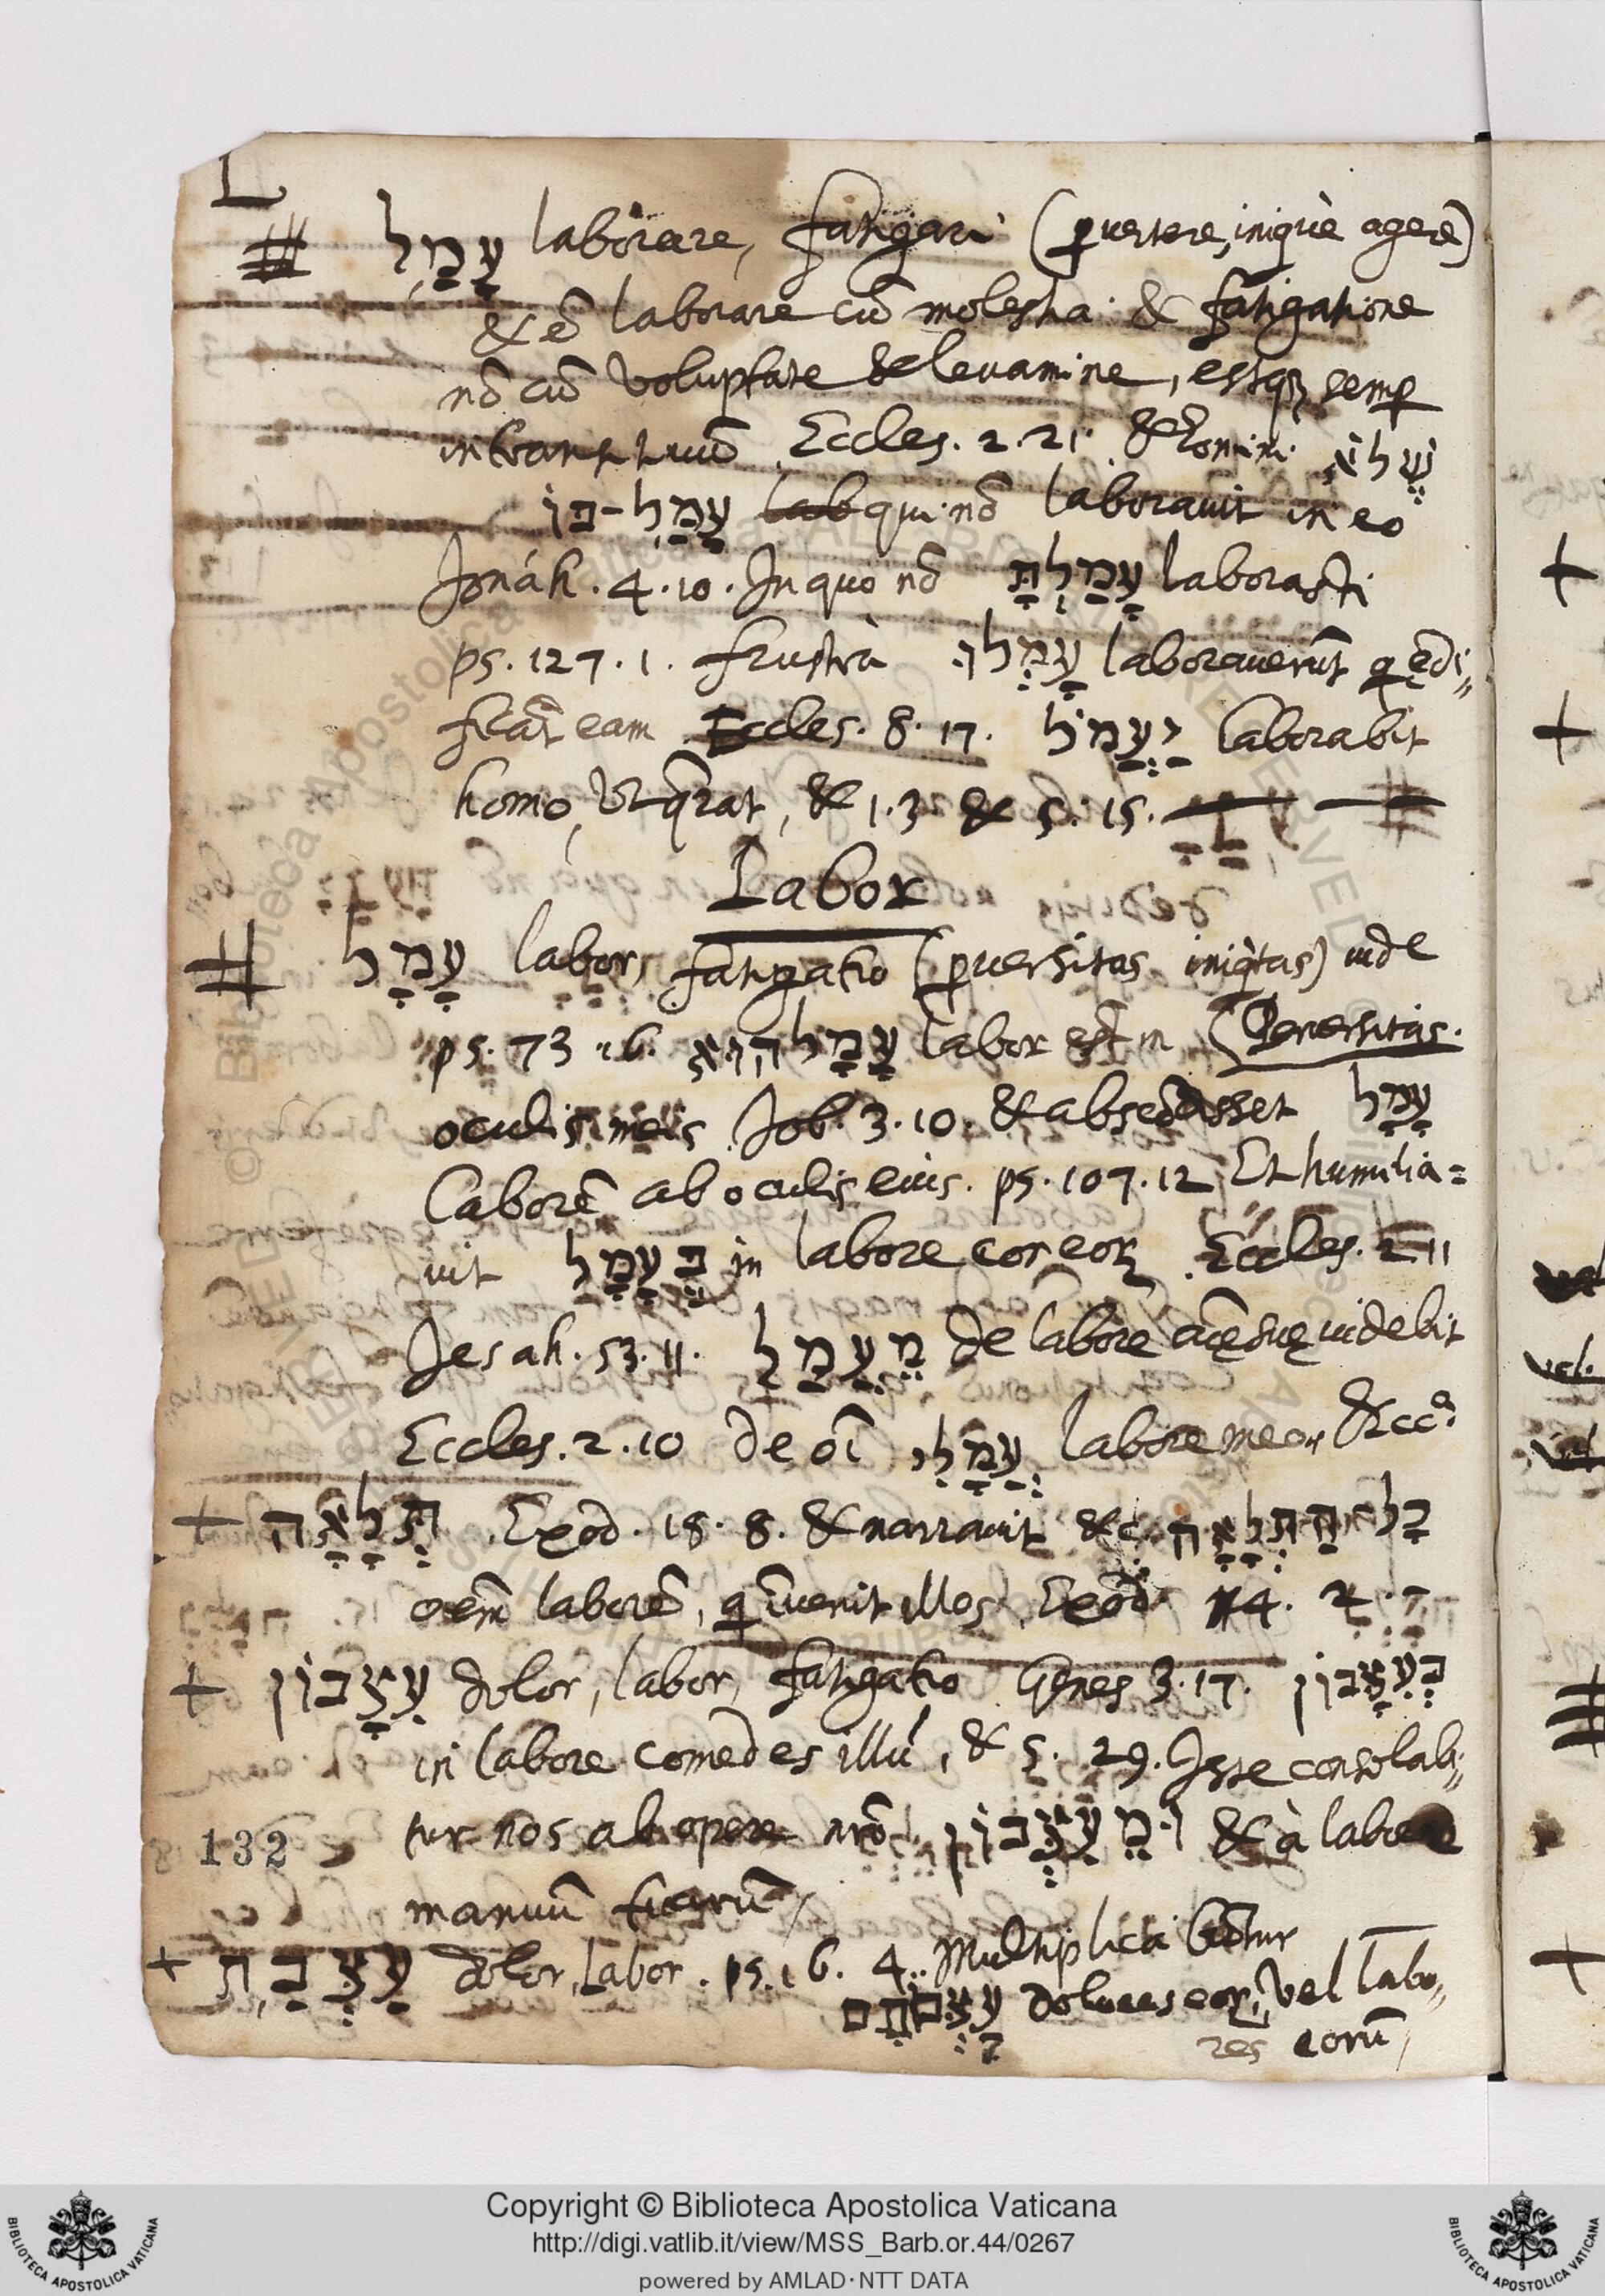 L
עָמַל laborare, fatigari (ꝑuertere, iniquè agere)
& ē laborare cū molestia & fatigatione
nō cū voluptate & leuamine, estqȝ semꝑ
intransitiuū Eccles. 2. 21. & homini שֶׁלֹּא
עָמַל־בּוֹ qui nō laborauit in eo
Jonáh. 4. 10. In quo nō עָמַלְתָּ laborasti
ps. 127. 1. frustrà עָמְלוּ laborauerūt q ędi„
ficāt eam Eccles. 8. 17. יַעֲמֹל laborabit
homo, vt q̄rat, & 1. 3 & 5. 15.
Labor
עָמָל labor, fatigatio (ꝑuersitas iniq̀tas) uide
ps. 73 16. עָמָל הוּא labor est in (Peruersitas.
oculis meis Job. 3. 10. & abscōdisset עָמָל
laborē ab oculis eius. ps. 107. 12 Et humilia=
uit בֶּעָמָל in labore cor eoꝝ Eccles. 2 11
Jesah. 53. 11. מֵעֲמַל de labore aīę suę uidebit
Eccles. 2. 10 de oī עֲמָלִי labore meo, &cc.ª
תְּלָאָה Exod. 18. 8. & narrauit &c. כָּל־הַתְּלָאָה
oēm laborē, q īuenit illos,
עִצָּבוֹן dolor, labor, fatigatio Genes 3. 17. בְּעִצָּבוֹן
in labore comedes illū, & 5. 29. Iste consolabi„
tur nos ab opere nrō וּמֵעִצְּבוֹן & à labore
132
manuū
עַצֶּבֶת dolor, labor. ps. 16. 4. Multiplicabūtur
עַצְּבוֹתָם dolores eoꝝ, vel labo„
res eorū
Copyright © Biblioteca Apostolica Vaticana
http://digi.vatlib.it/view/MSS_Barb.or.44/0267
powered by AMLAD·NTT DATA